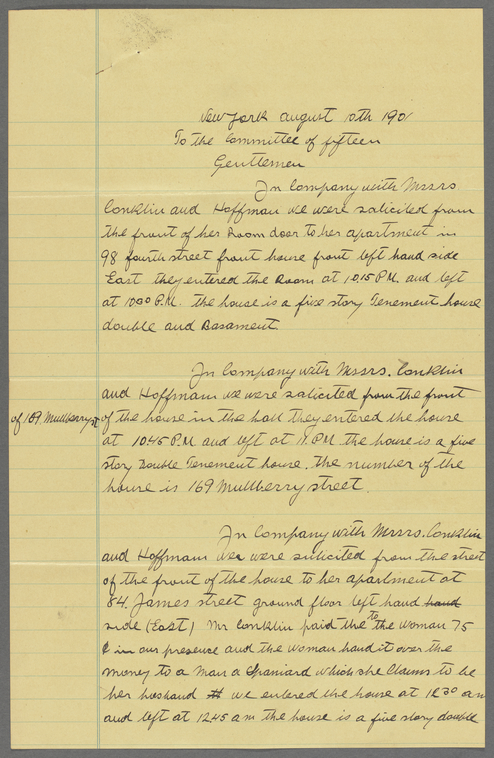 New York august 10th 1901
To the Committee of fifteen
Gentlemen
In Company with Mssrs
Conklin and Hoffman we were salicited from
the front of her Room door to her apartment in
98 fourth street front house front left hand side
East they entered the Room at 10.15 P.M. and left
at 1030 P.M. the house is a five story Tenement house
double and Basament
In Company with Mssrs. Conklin
and Hoffmann we were salicited from the front
of 169 Mullberry st
of the house in the hall they entered the house
at 10.45 P.M and left at 11 P.M the house is a five
story Double Tenement house. the number of the
house is 169 Mullberry street.
In Company with Mssrs. Conklin
and Hoffmann we were salicited from the street
of the front of the house to her apartment at
84. James street ground floor left hand hand
side (East) Mr Conklin paid the to the woman 75
¢ in our presence and the woman hand it over the
money to a man a Spaniard which she Claims to be
her hosband we entered the house at 1230 am
and left at 1245 am the house is a five story double